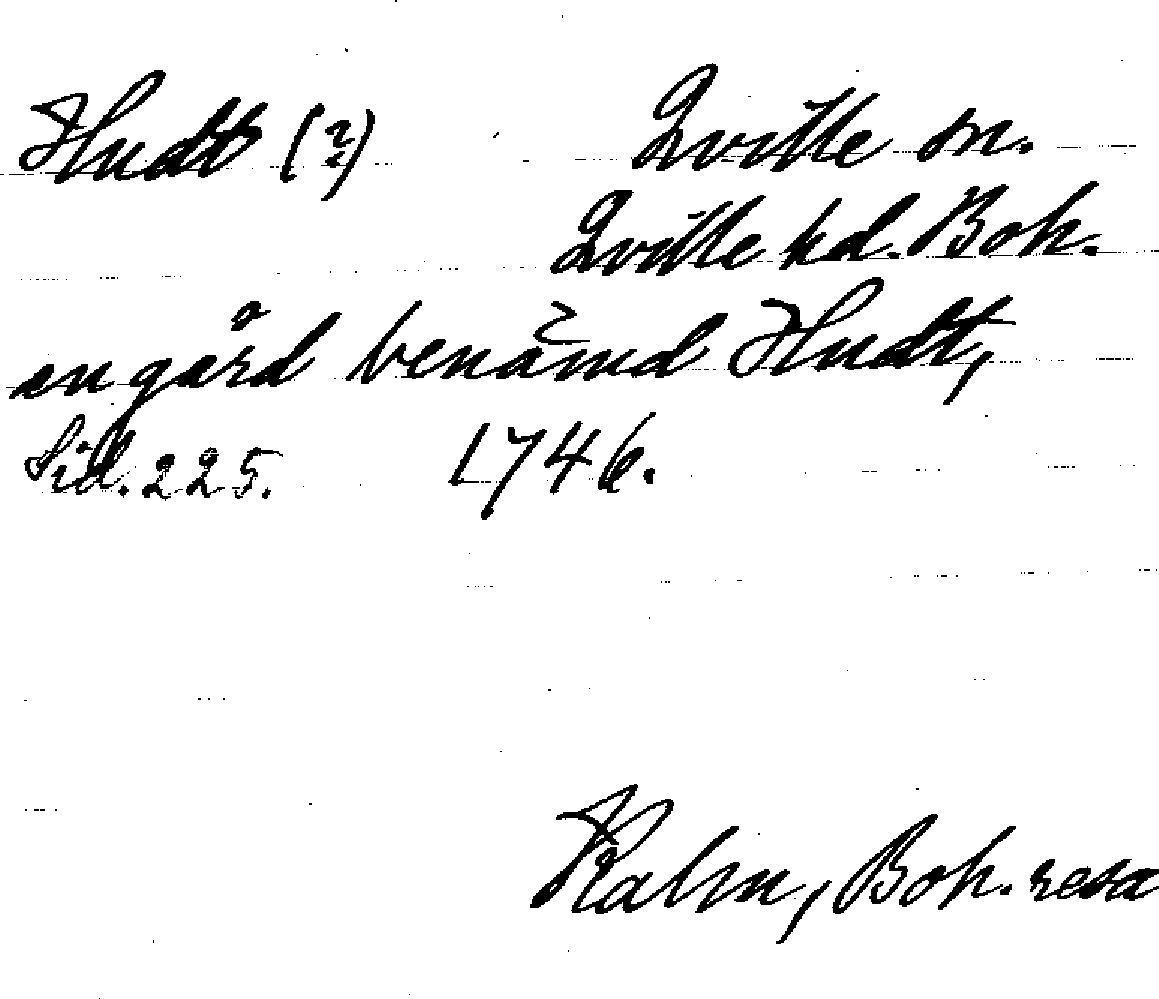 Hudt (?) Qville sn.
Qville hd. Boh.
en gård benämd Hudt,
Sid. 225. 1746.
Kalm, Boh. resa